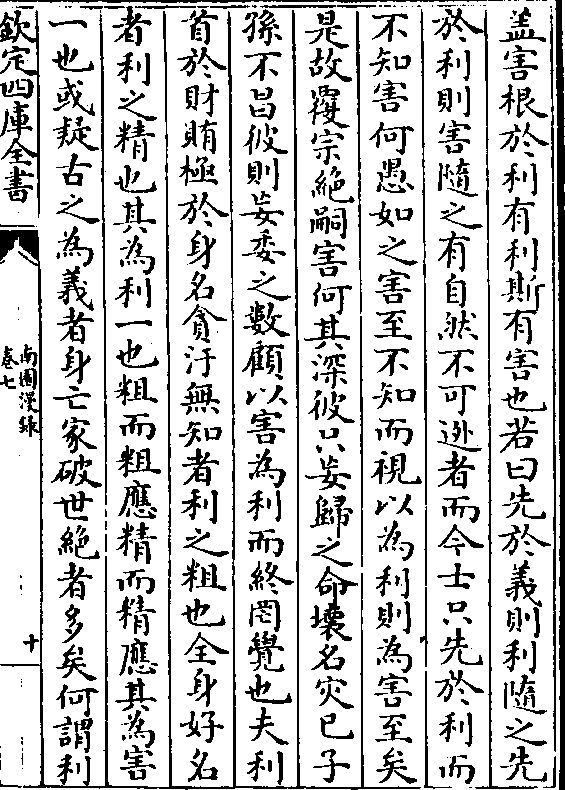 盖害根於利有利斯有害也若曰先於義則利隨之先
於利則害隨之有自然不可逃者而今士只先於利而
不知害何愚如之害至不知而視以為利則為害至矣
是故覆宗絶嗣害何其深彼只妄歸之命壊名灾已子
孫不昌彼則妄委之數顧以害為利而終罔覺也夫利
首於財賄極於身名貪汙無知者利之粗也全身好名
者利之精也其為利一也粗而粗應精而精應其為害
一也或疑古之為義者身亡家破世絶者多矣何謂利
欽定四庫全書
南園漫録
卷七
十